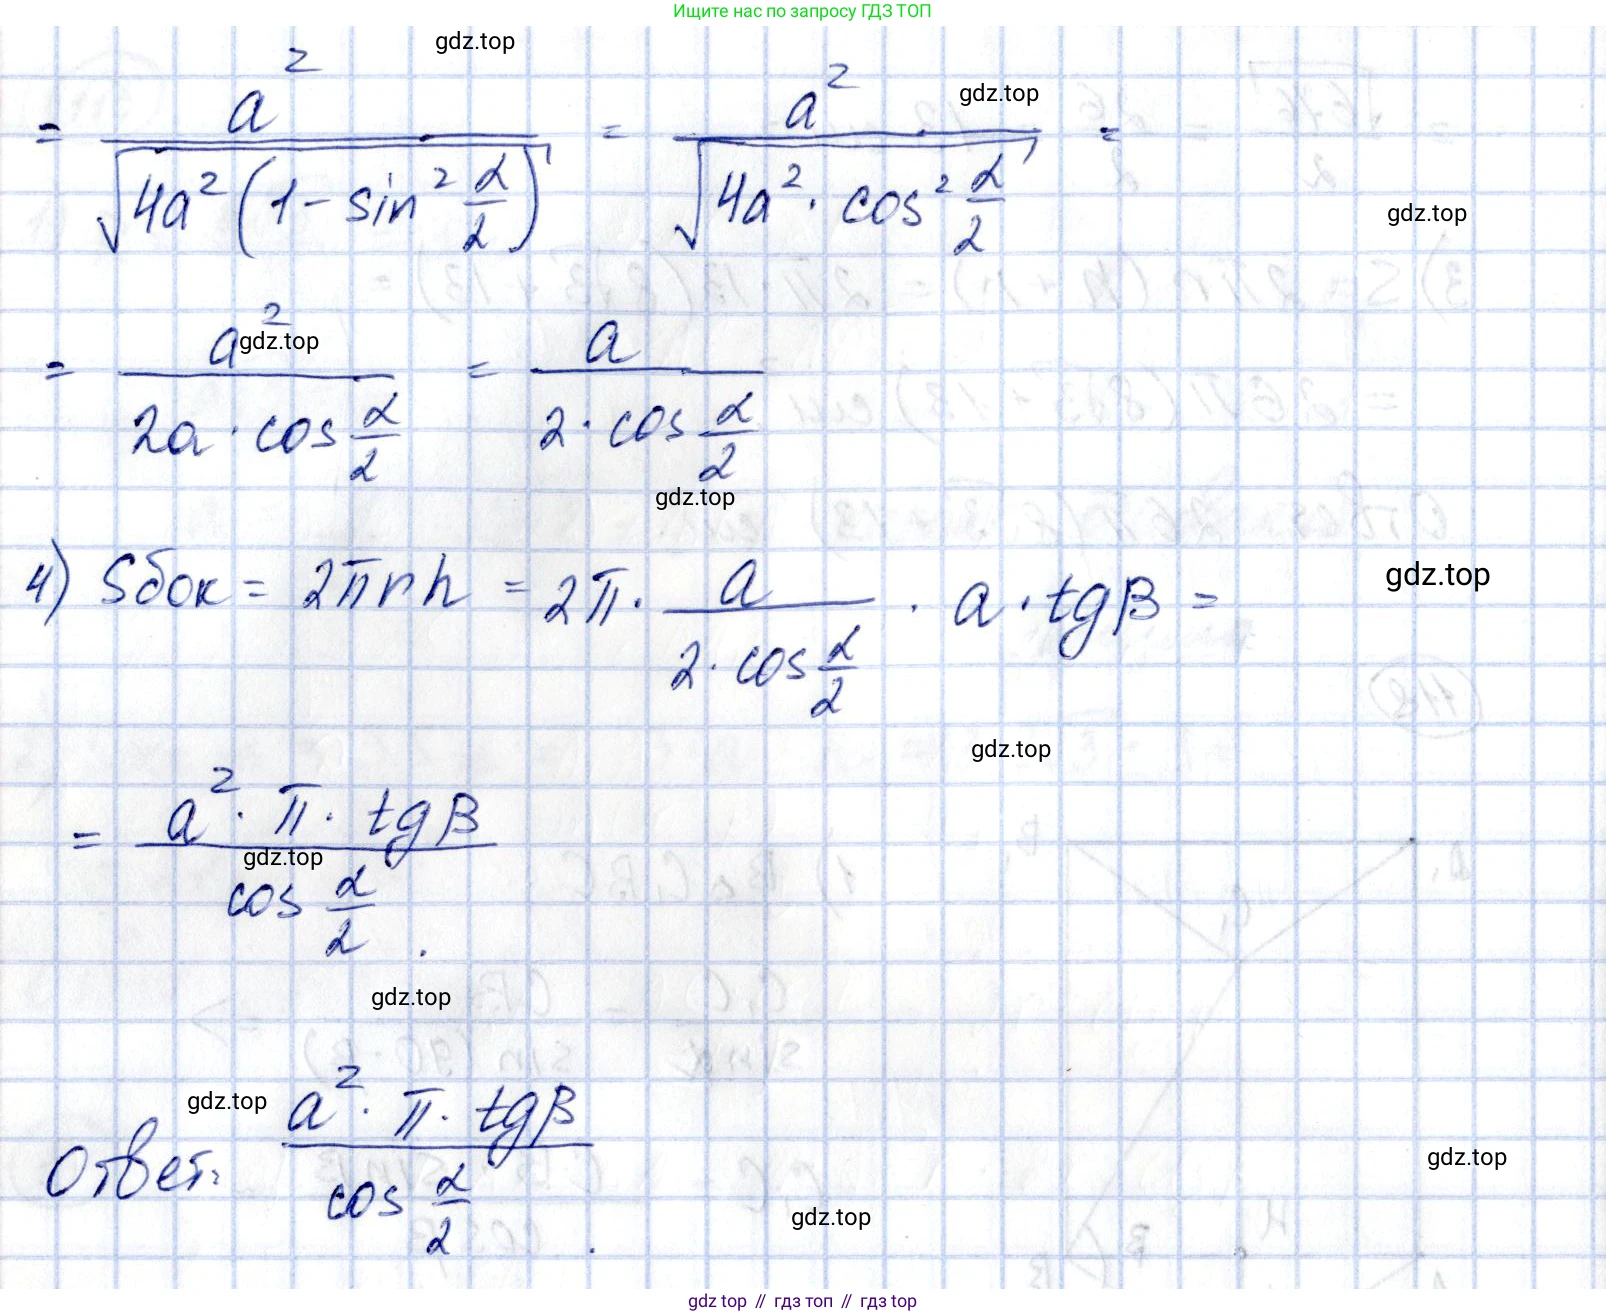 Ищите нас по запросу ГДЗ ТОП
gdz.top
= a² / √(4a²(1 - sin² α/2)) = a² / √(4a² · cos² α/2) =
gdz.top
gdz.top
= a² / (2a · cos α/2) = a / (2 · cos α/2)
gdz.top
gdz.top
4) Sбок = 2πrh = 2π · a / (2 · cos α/2) · a · tgβ =
gdz.top
gdz.top
= a² · π · tgβ / cos α/2 .
gdz.top
gdz.top
gdz.top
Ответ: a² · π · tgβ / cos α/2 .
gdz.top
gdz.top
gdz top // гдз топ // гдз top